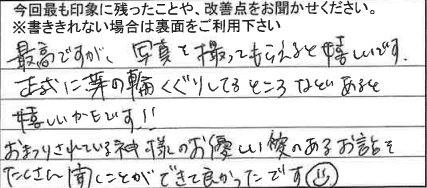 今回最も印象に残ったことや、改善点をお聞かせください。
※書ききれない場合は裏面をご利用下さい
最高ですが、写真を撮ってもらえると嬉しいです。
茅の輪くぐりしてるところなどあると
嬉しいかもです!!
おまつりされている神様のお優しい愛のあるお話を
たくさん聞くことができて良かったです